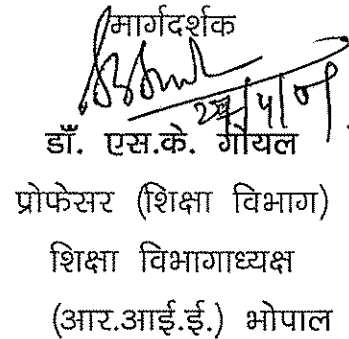 मार्गदर्शक
डॉ. एस.के. गोयल
प्रोफेसर (शिक्षा विभाग)
शिक्षा विभागाध्यक्ष
(आर.आई.ई.) भोपाल